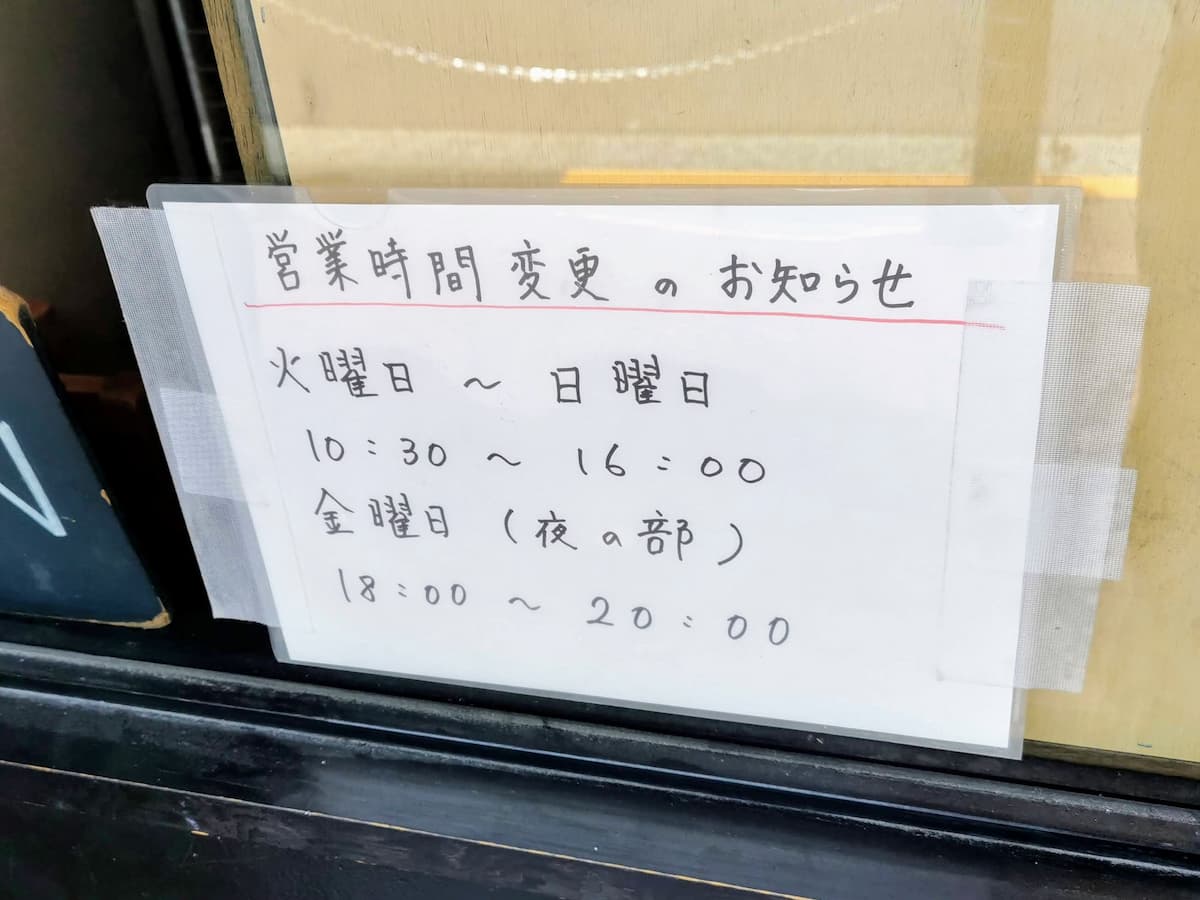 営業時間変更のお知らせ
火曜日 〜 日曜日
10:30 〜 16:00
金曜日 (夜の部)
18:00 〜 20:00